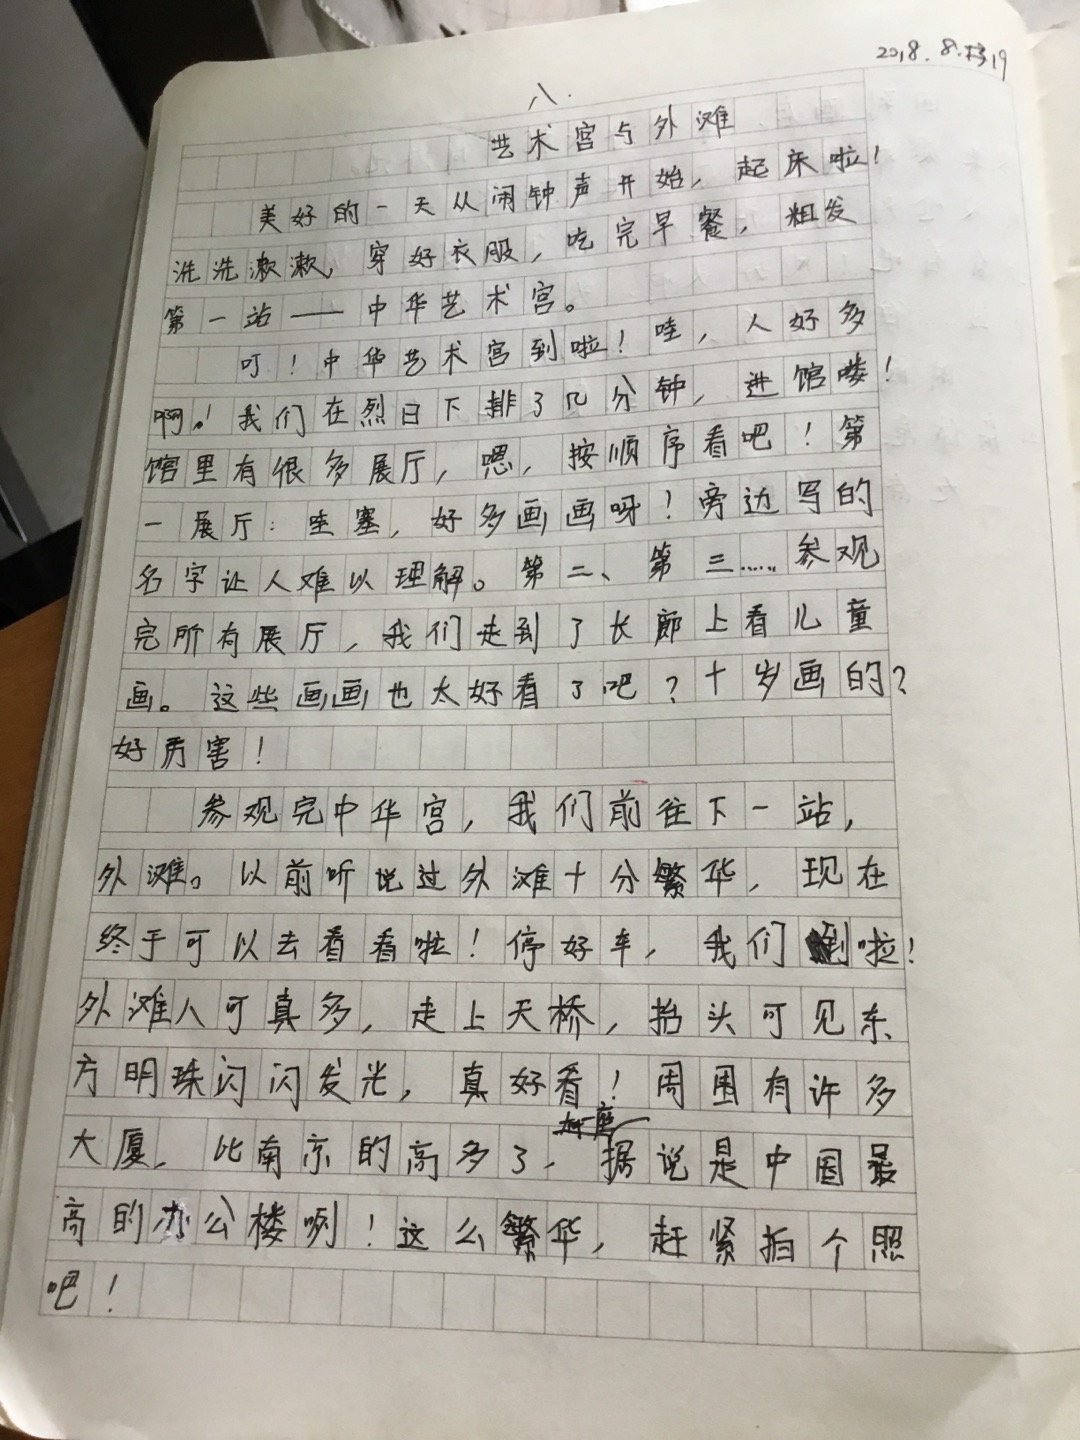 2018.8.19
八.
艺术宫与外滩
美好的一天从闹钟声开始，起床啦！
洗洗漱漱，穿好衣服，吃完早餐，粗发
第一站——中华艺术宫。
叮！中华艺术宫到啦！哇，人好多
啊！我们在烈日下排了几分钟，进馆喽！
馆里有很多展厅，嗯，按顺序看吧！第
一展厅：哇塞，好多画画呀！旁边写的
名字让人难以理解。第二、第三……参观
完所有展厅，我们走到了长廊上看儿童
画。这些画画也太好看了吧？十岁画的？
好厉害！
参观完中华宫，我们前往下一站，
外滩。以前听说过外滩十分繁华，现在
终于可以去看看啦！停好车，我们到啦！
外滩人可真多，走上天桥，抬头可见东
方明珠闪闪发光，真好看！周围有许多
大厦，比南京的高多了，据说是中国最
高的办公楼咧！这么繁华，赶紧拍个照
吧！